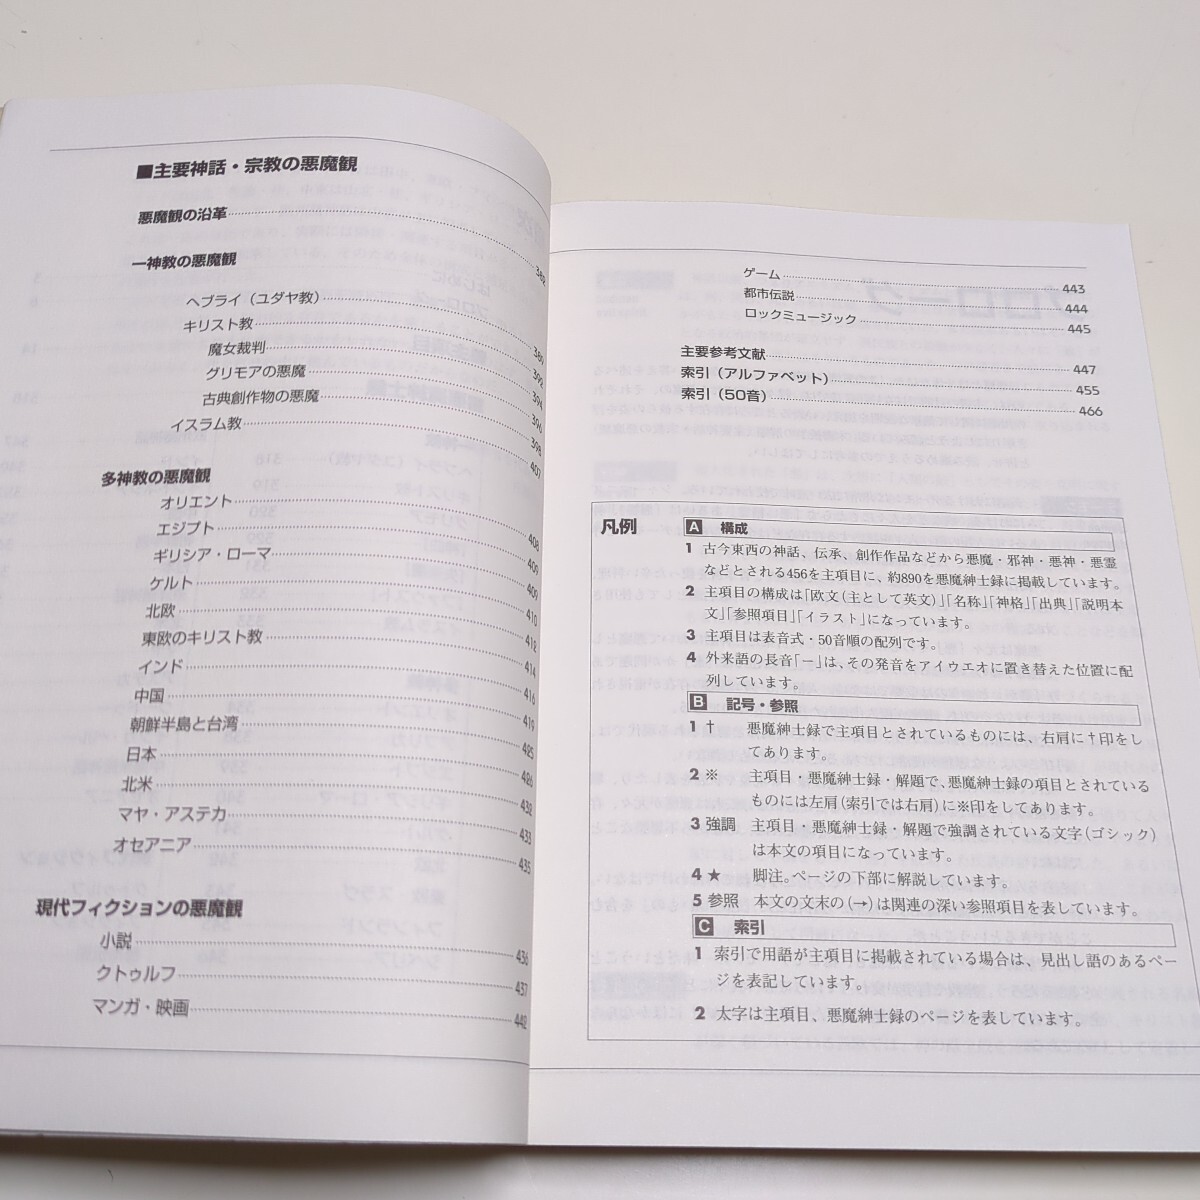 ■主要神話・宗教の悪魔観
悪魔観の沿革 382
一神教の悪魔観
ヘブライ（ユダヤ教）
キリスト教
魔女裁判 392
グリモアの悪魔 394
古典創作物の悪魔 396
イスラム教
多神教の悪魔観
オリエント 408
エジプト 409
ギリシア・ローマ 409
ケルト 410
北欧 412
東欧のキリスト教 414
インド 416
中国 419
朝鮮半島と台湾 425
日本 426
北米 432
マヤ・アステカ 433
オセアニア 435
現代フィクションの悪魔観
小説 436
クトゥルフ 437
マンガ・映画 442
ゲーム 443
都市伝説 444
ロックミュージック 445
主要参考文献 447
索引（アルファベット） 455
索引（50音） 466
凡例
A 構成
1 古今東西の神話、伝承、創作作品などから悪魔・邪神・悪神・悪霊
などとされる456を主項目に、約890を悪魔紳士録に掲載しています。
2 主項目の構成は「欧文（主として英文）」「名称」「神格」「出典」「説明本
文」「参照項目」「イラスト」になっています。
3 主項目は表音式・50音順の配列です。
4 外来語の長音「ー」は、その発音をアイウエオに置き替えた位置に配
列しています。
B 記号・参照
1 † 悪魔紳士録で主項目とされているものには、右肩に†印をし
てあります。
2 ※ 主項目・悪魔紳士録・解題で、悪魔紳士録の項目とされている
ものには左肩（索引では右肩）に※印をしてあります。
3 強調 主項目・悪魔紳士録・解題で強調されている文字（ゴシック）
は本文の項目になっています。
4 ★ 脚注。ページの下部に解説しています。
5 参照 本文の文末の（→）は関連の深い参照項目を表しています。
C 索引
1 索引で用語が主項目に掲載されている場合は、見出し語のあるペー
ジを表記しています。
2 太字は主項目、悪魔紳士録のページを表しています。